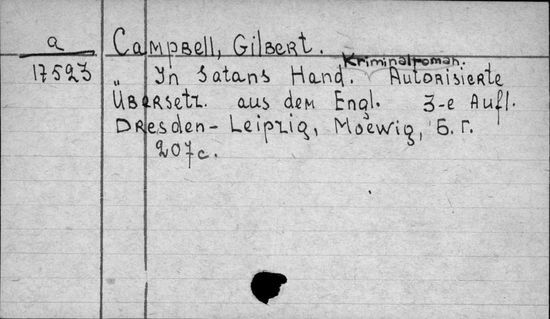 a
17523
Campbell, Gilbert.
Kriminalroman.
„ In Satans Hand. Autorisierte
Übersetz. aus dem Engl. 3-e Aufl.
Dresden-Leipzig, Moewig, Б. г.
207 с.